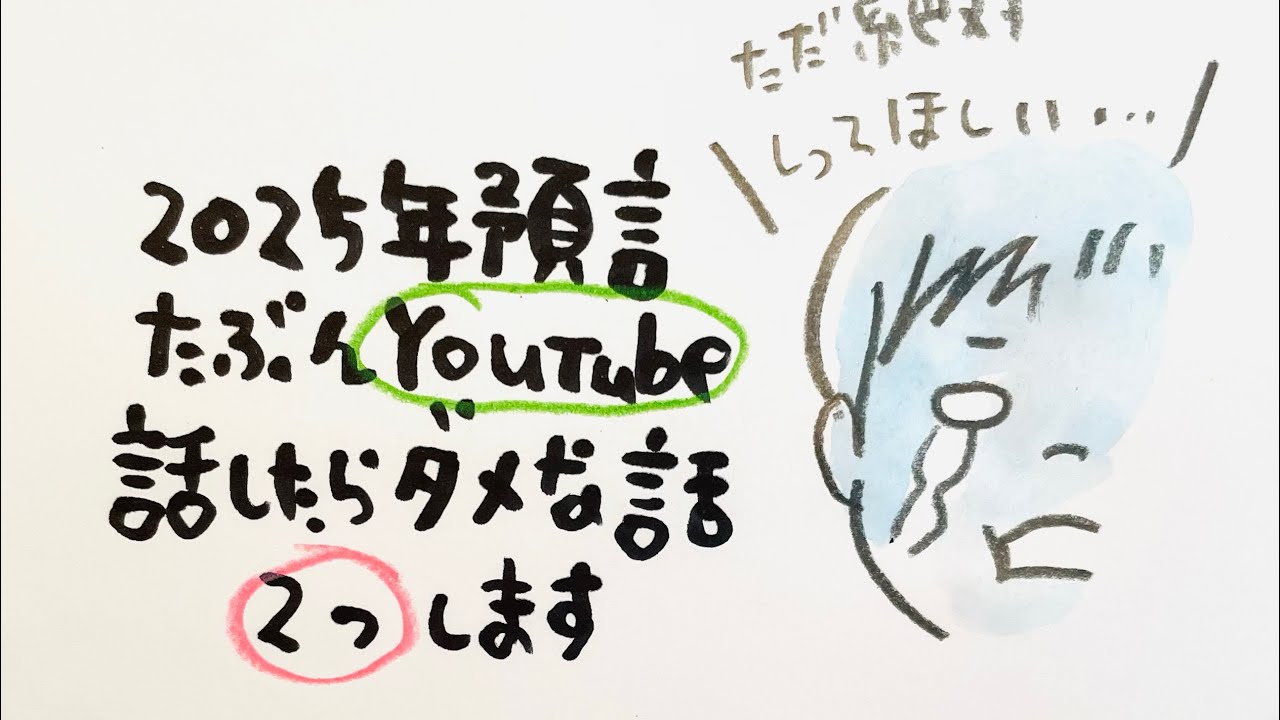 ただ絶対
しってほしい...
2025年預言
たぶんYouTube
話したらダメな話
2つします